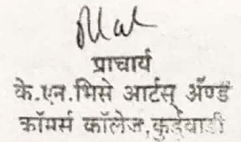 प्राचार्य
के.एन.भिसे आर्टस् ॲण्ड
कॉमर्स कॉलेज,कुर्डुवाडी